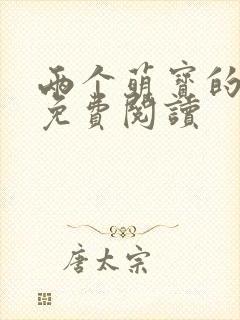 两个萌寳的
免費閱讀
唐太宗